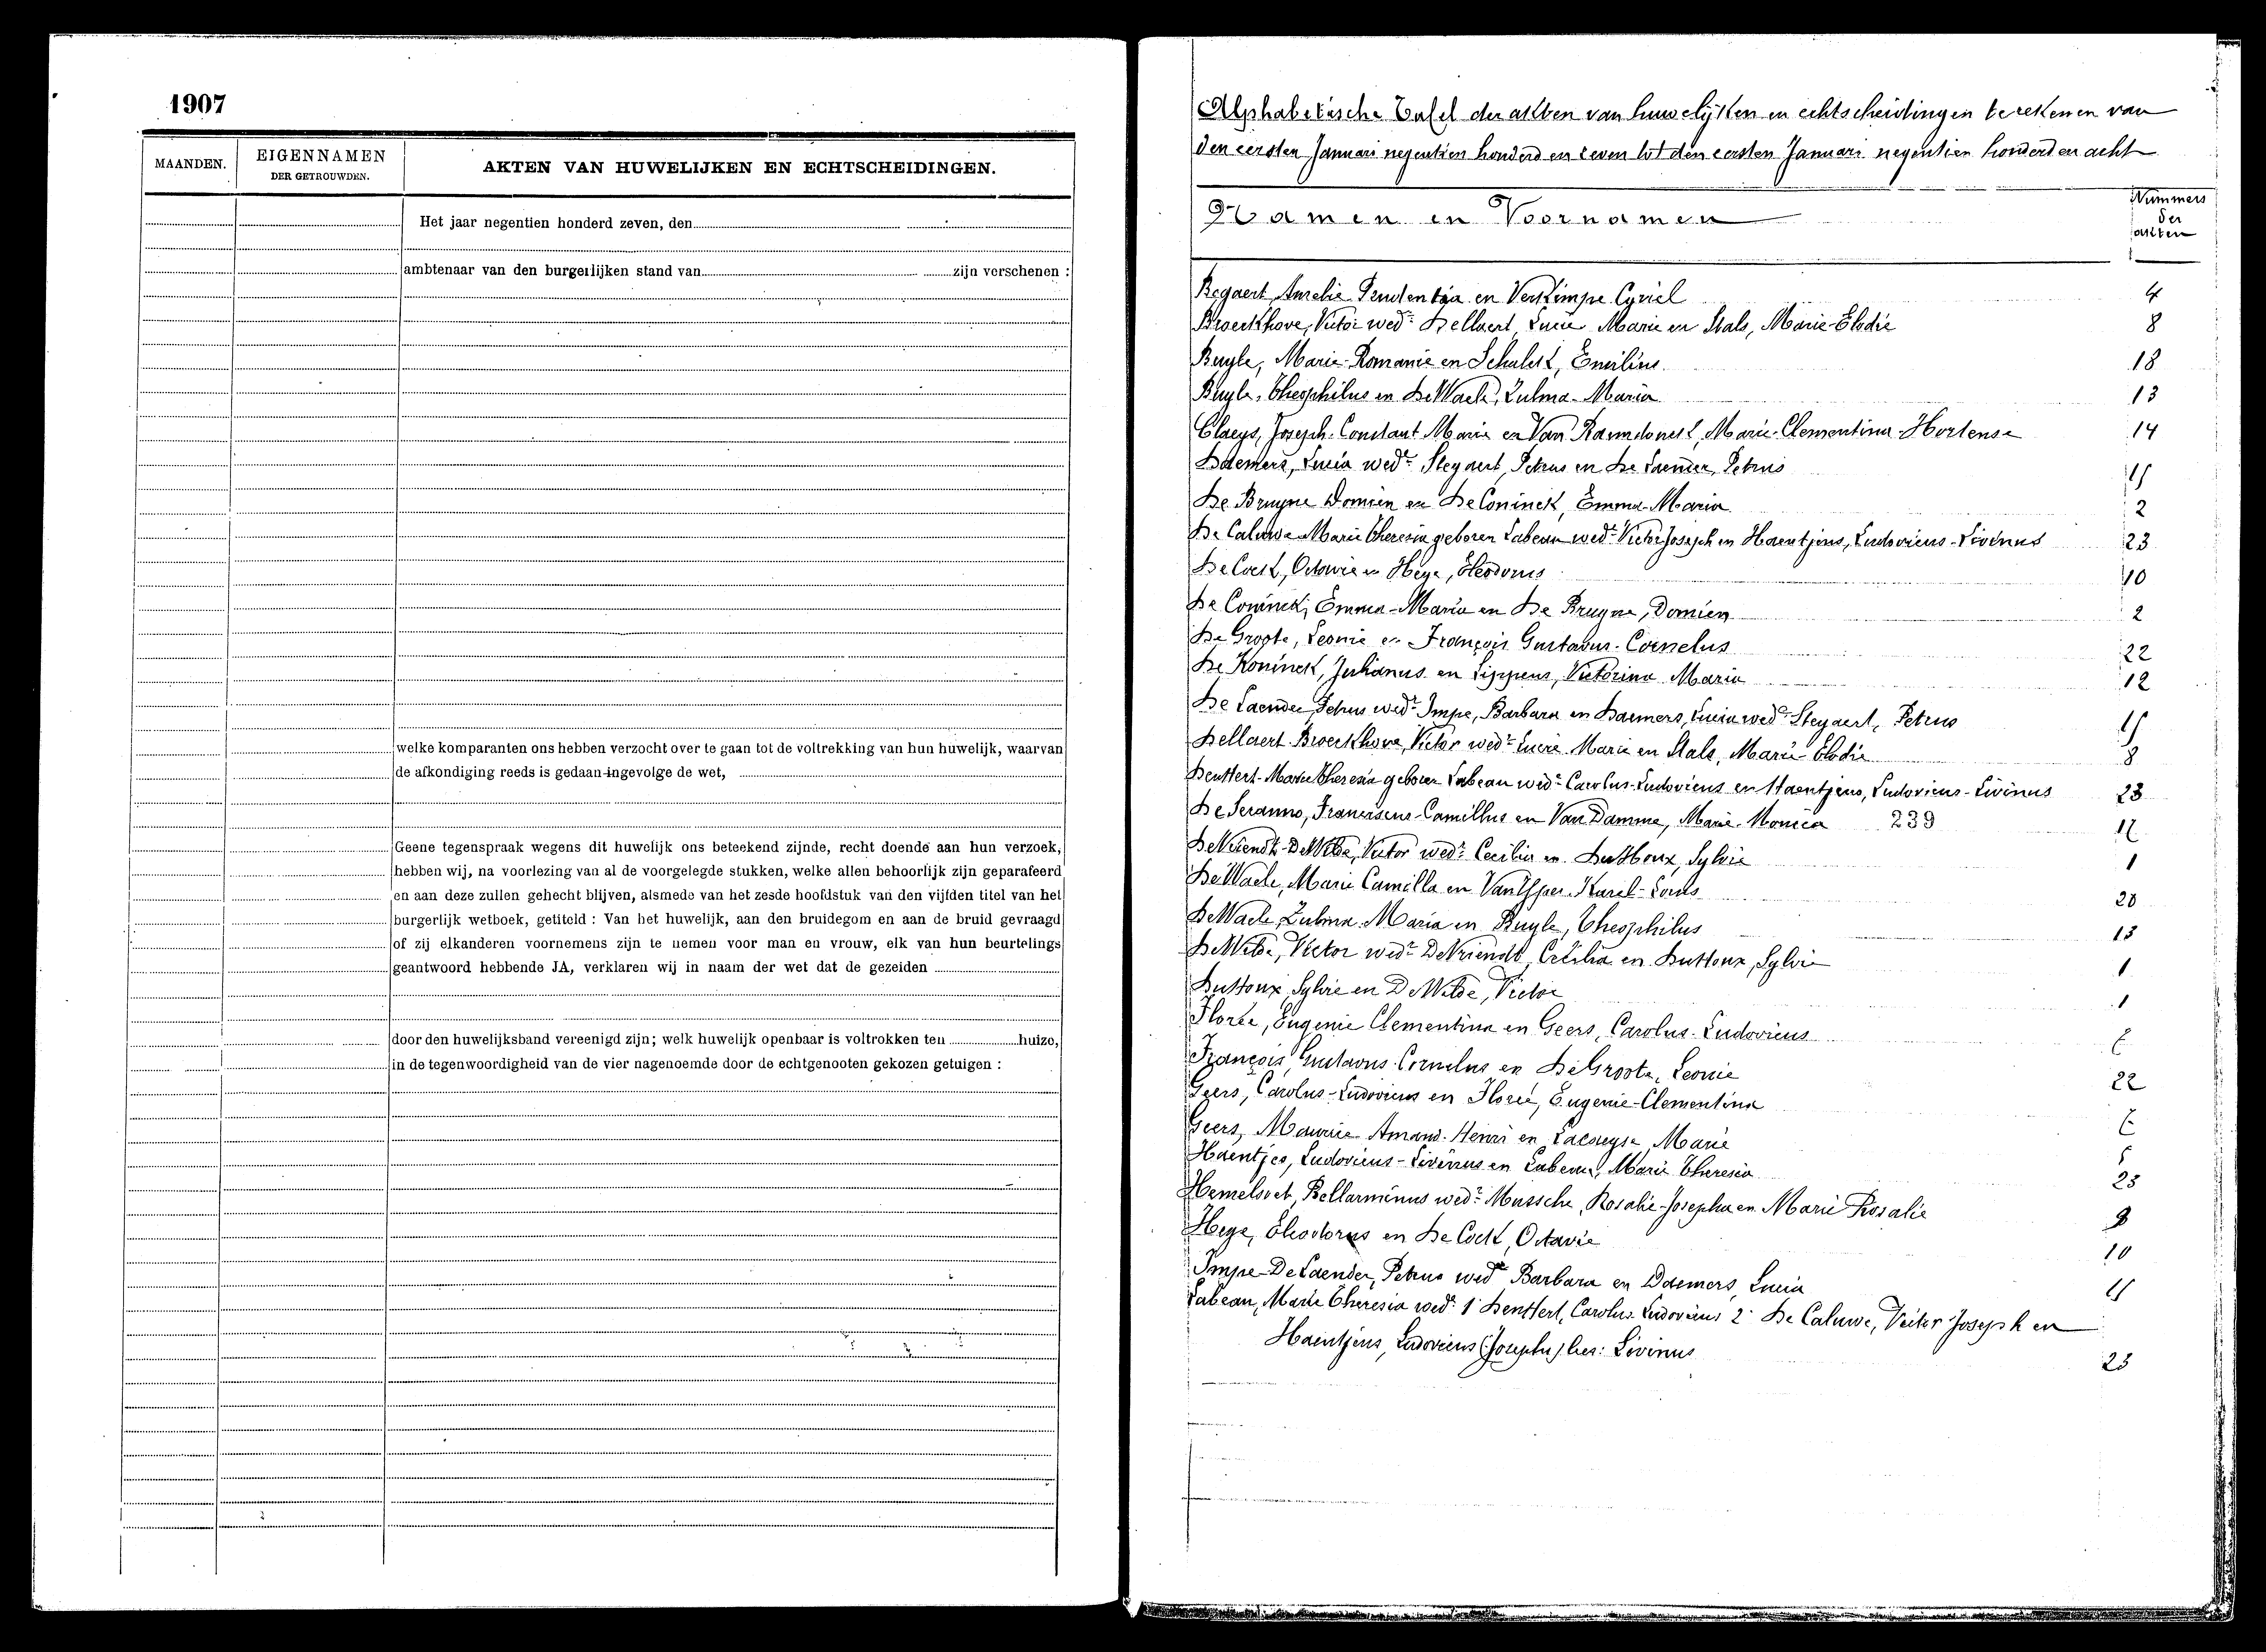 1907
MAANDEN.
EIGENNAMEN
DER GETROUWDEN.
AKTEN VAN HUWELIJKEN EN ECHTSCHEIDINGEN.
Het jaar negentien honderd zeven, den
ambtenaar van den burgerlijken stand van zijn verschenen :
welke komparanten ons hebben verzocht over te gaan tot de voltrekking van hun huwelijk, waarvan
de afkondiging reeds is gedaan ingevolge de wet,
Geene tegenspraak wegens dit huwelijk ons beteekend zijnde, recht doende aan hun verzoek,
hebben wij, na voorlezing van al de voorgelegde stukken, welke allen behoorlijk zijn geparafeerd
en aan deze zullen gehecht blijven, alsmede van het zesde hoofdstuk van den vijfden titel van het
burgerlijk wetboek, getiteld : Van het huwelijk, aan den bruidegom en aan de bruid gevraagd
of zij elkanderen voornemens zijn te nemen voor man en vrouw, elk van hun beurtelings
geantwoord hebbende JA, verklaren wij in naam der wet dat de gezeiden
door den huwelijksband vereenigd zijn; welk huwelijk openbaar is voltrokken ten huize,
in de tegenwoordigheid van de vier nagenoemde door de echtgenooten gekozen getuigen :
Alphabetische Tafel der akten van huwelijken en echtscheidingen te rekenen van
den eersten Januari negentien honderd en zeven tot den eersten Januari negentien honderd en acht
Namen en Voornamen
Nummers
der
akten
Begaert Amelie Prudentia en Verkimpe Cyriel 4
Broeckhove, Victor wedr Dellaert Lucie Marie en Stals, Marie-Elodie 8
Buyle, Marie-Romanie en Schalck, Emilius 18
Buyle, Theophilus en De Waele, Zulma-Maria 13
Claeys, Joseph-Constant Marie en Van Raemdonck, Marie-Clementina-Hortense 14
Daemers, Lucia wede Steyaert, Petrus en De Laender, Petrus
De Bruyne Domien en De Coninck, Emma-Maria 2
De Caluwe Marie Theresia geboren Labeau wede Victor Joseph en Haentjens, Ludovicus-Livinus 23
De Cock, Octavie en Heye, Theodorus 10
De Coninck, Emma-Maria en De Bruyne, Domien 2
De Groote, Leonie en François Gustavus-Cornelus 22
De Koninck, Julianus en Lippens, Victorina Maria 12
De Laender Petrus wedr Impe, Barbara en Daemers, Lucia wede Steyaert, Petrus
Dellaert-Broeckhove, Victor wedr Lucie Marie en Stals, Marie-Elodie 8
Deuttert-Marie Theresia geboren Labeau wede Carolus-Ludovicus en Haentjens, Ludovicus-Livinus 23
De Seranno, Franciscus-Camillus en Van Damme, Marie-Monica 239
De Vriendt-De Wilde, Victor wedr Cecilia en Duttoux, Sylvie 1
De Waele, Marie Camilla en Van Karel-Louis 20
De Waele Zulma-Maria en Buyle, Theophilus 13
De Wilde, Victor wedr De Vriendt, Cecilia en Duttoux, Sylvie 1
Duttoux Sylvie en De Wilde, Victor 1
Florée, Eugenie Clementina en Geers, Carolus-Ludovicus
François Gustavus-Cornelus en De Groote, Leonie 22
Geers, Carolus-Ludovicus en Florée, Eugenie-Clementina
Geers, Maurice Amand-Henri en Marie
Haentjes, Ludovicus-Livinus en Labeau, Marie Theresia 23
Hemelsoet, Bellarminus wedr Mussche, Rosalie-Josepha en Marie Rosalie
Heye, Theodorus en De Cock, Octavie 10
Impe-De Laender, Petrus wedr Barbara en Daemers, Lucia
Labeau, Marie Theresia wede 1 Deuttert, Carolus Ludovicus 2 De Caluwe, Victor Joseph en
Haentjens, Ludovicus (Josephu) les: Livinus 23